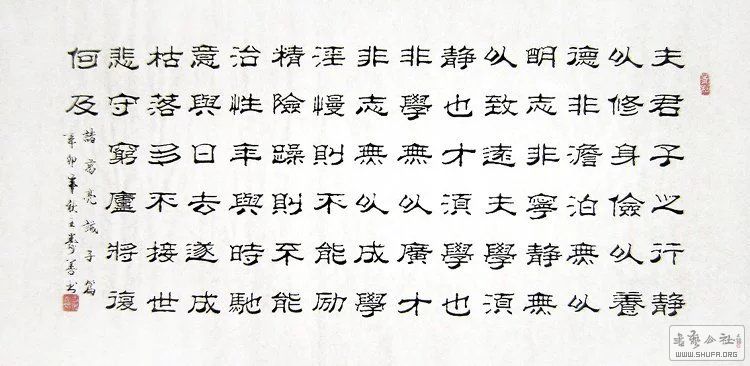 夫君子之行静
以修身儉以養
德非澹泊無以
眀志非寧静無
以致遠夫學須
静也才須學也
非學無以廣才
非志無以成學
淫慢則不能励
精險躁則不能
治性年與時馳
意與日去遂成
枯落多不接世
悲守窮廬將復
何及
諸葛亮誡子篇
辛卯年秋王書
WWW.SHUFA.ORG